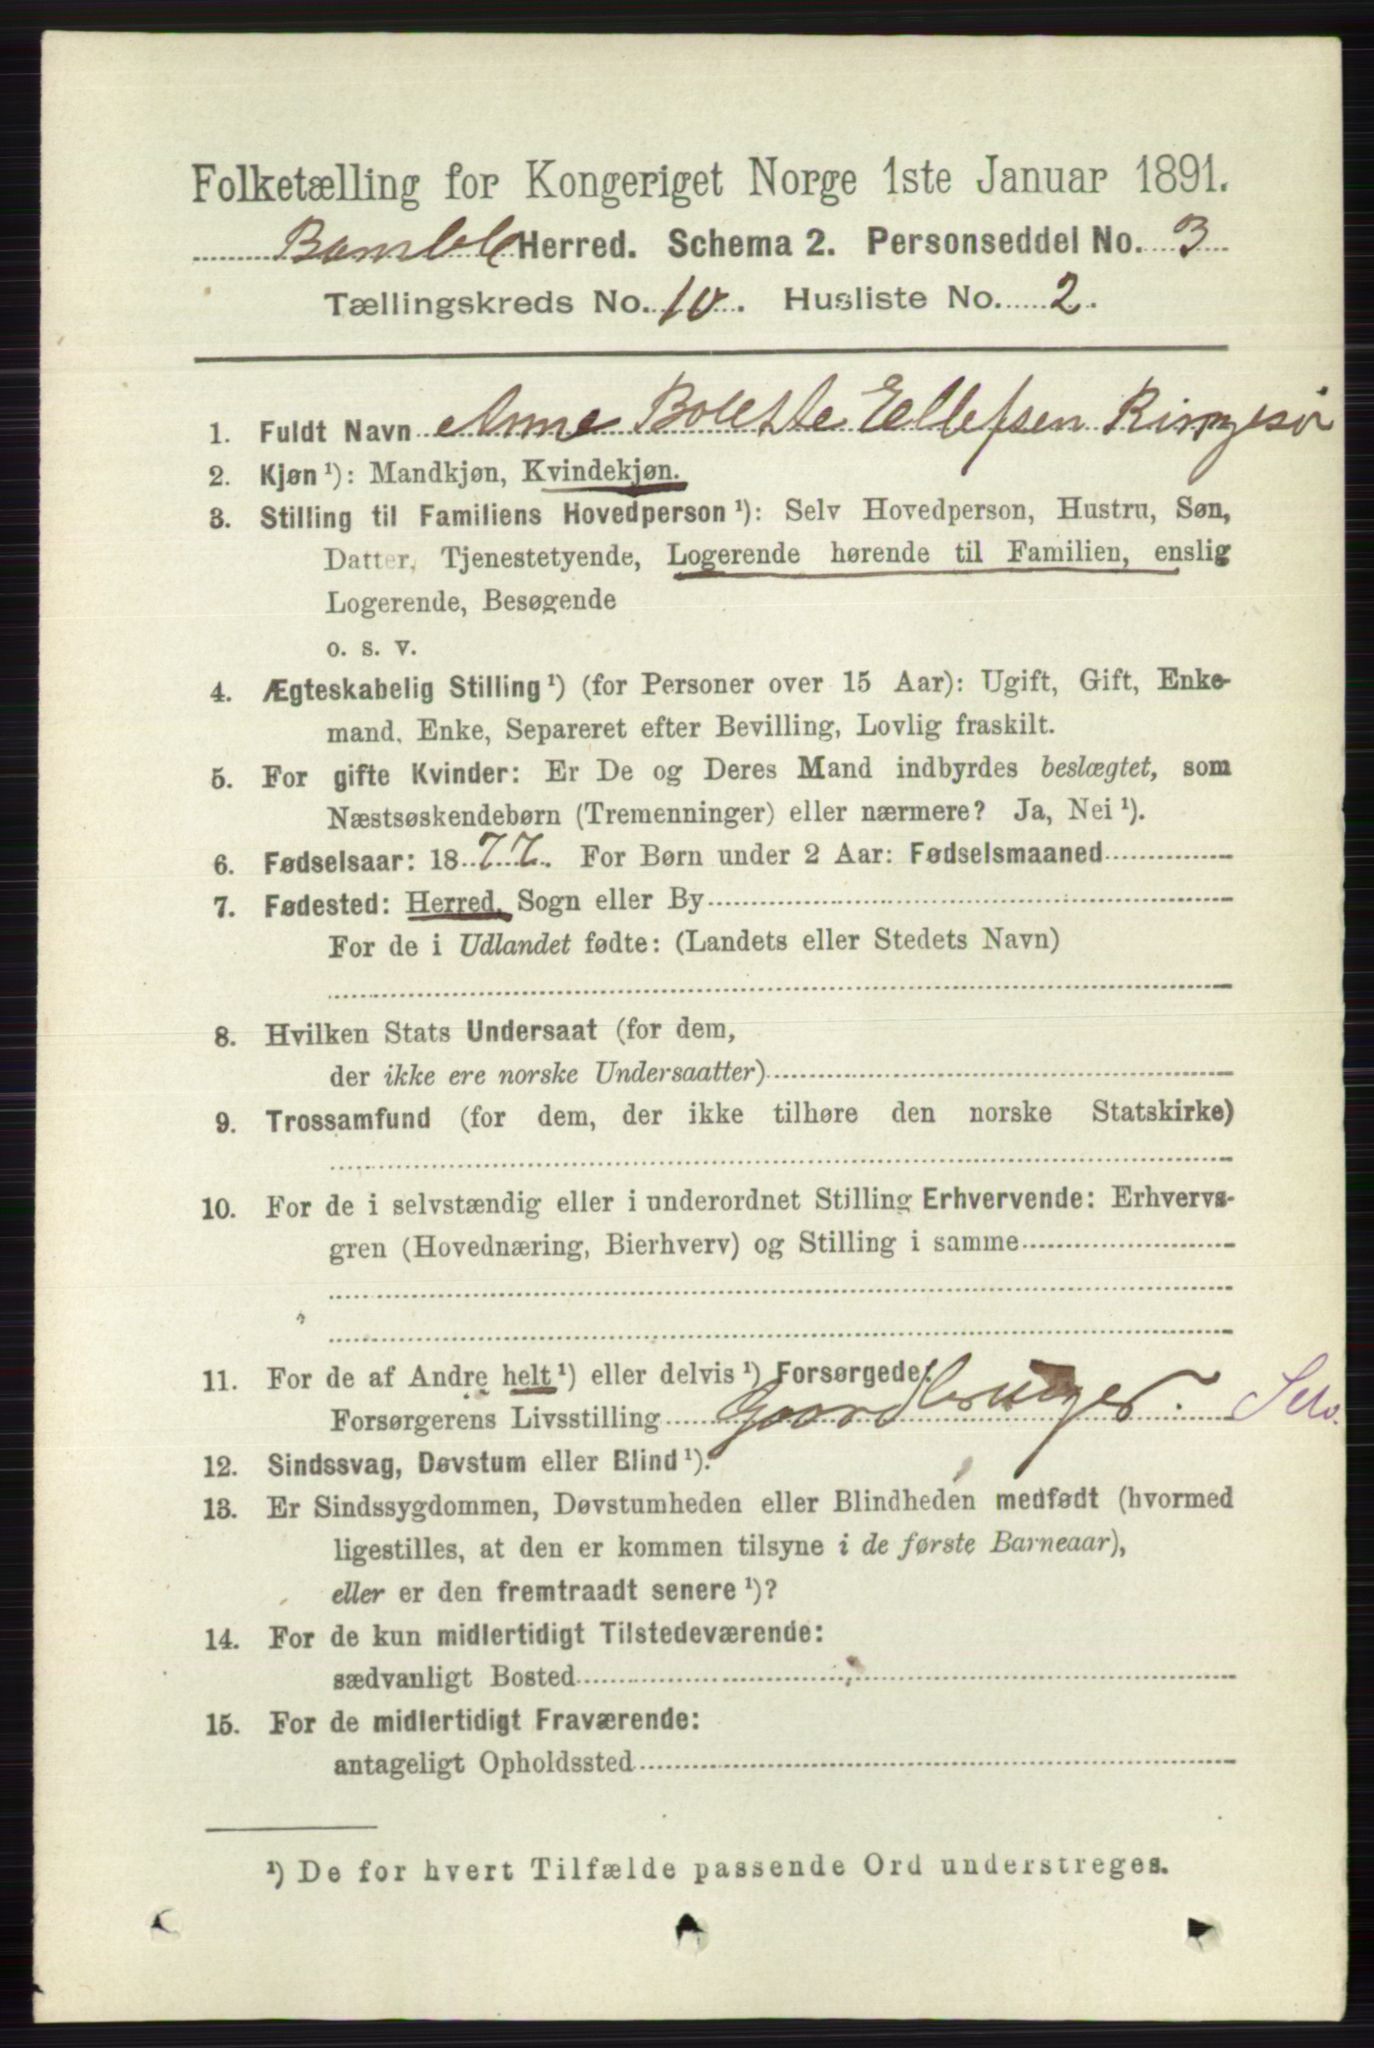 Folketælling for Kongeriget Norge 1ste Januar 1891.
Bamble Herred. Schema 2. Personseddel No. 3
Tællingskreds No. 10. Husliste No. 2.
1. Fuldt Navn Anne Bolette Ellefsen
2. Kjøn ¹): Mandkjøn, Kvindekjøn.
3. Stilling til Familiens Hovedperson ¹): Selv Hovedperson, Hustru, Søn,
Datter, Tjenestetyende, Logerende hørende til Familien, enslig
Logerende, Besøgende
o. s. v.
4. Ægteskabelig Stilling ¹) (for Personer over 15 Aar): Ugift, Gift, Enke-
mand, Enke, Separeret efter Bevilling, Lovlig fraskilt.
5. For gifte Kvinder: Er De og Deres Mand indbyrdes beslægtet, som
Næstsøskendebørn (Tremenninger) eller nærmere? Ja, Nei ¹).
6. Fødselsaar: 1877. For Børn under 2 Aar: Fødselsmaaned
7. Fødested: Herred, Sogn eller By
For de i Udlandet fødte: (Landets eller Stedets Navn)
8. Hvilken Stats Undersaat (for dem,
der ikke ere norske Undersaatter)
9. Trossamfund (for dem, der ikke tilhøre den norske Statskirke)
10. For de i selvstændig eller i underordnet Stilling Erhvervende: Erhvervs-
gren (Hovednæring, Bierhverv) og Stilling i samme
11. For de af Andre helt ¹) eller delvis ¹) Forsørgede:
Forsørgerens Livsstilling Gaardbruger. Selv.
12. Sindssvag, Døvstum eller Blind ¹).
13. Er Sindssygdommen, Døvstumheden eller Blindheden medfødt (hvormed
ligestilles, at den er kommen tilsyne i de første Barneaar),
eller er den fremtraadt senere ¹)?
14. For de kun midlertidigt Tilstedeværende:
sædvanligt Bosted
15. For de midlertidigt Fraværende:
antageligt Opholdssted
¹) De for hvert Tilfælde passende Ord understreges.